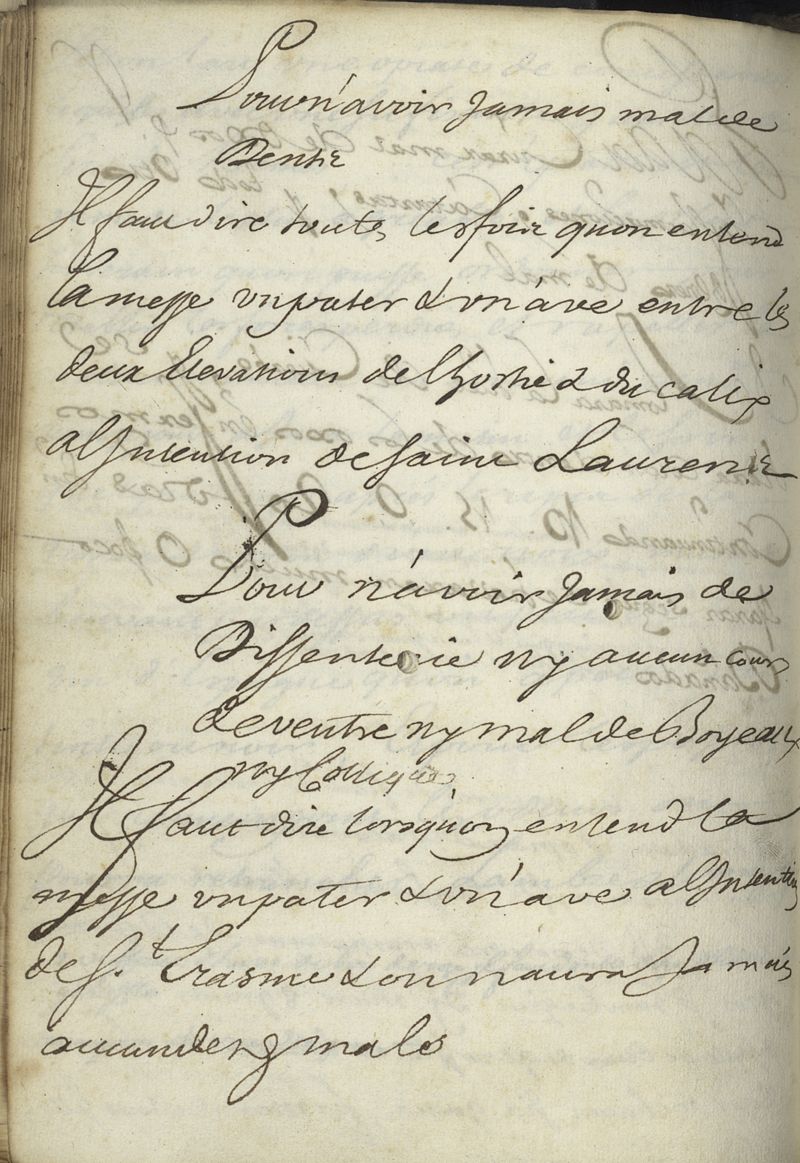 Pour n'avoir Jamais mal de
Dents
Il faut dire toutes les fois quon entend
la messe un pater & un ave entre les
deux Elevations de lhostie & du calix
a lIntention de saint Laurent
Pour n'avoir Jamais de
Dissenterie ny aucun cours
de ventre ny mal de Boyeaux
ny Colliques
Il faut dire lorsquon entend la
messe un pater & un ave a lIntention
de St. Erasme & on naura Jamais
aucun de ces mals